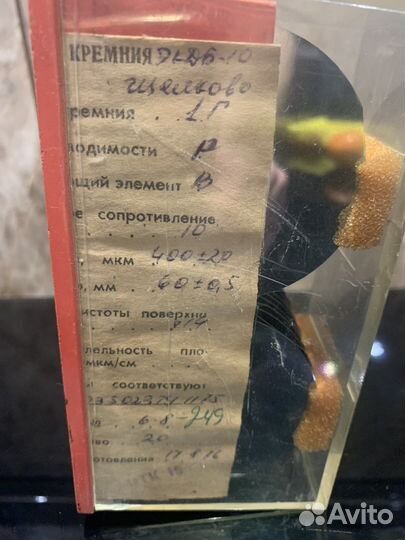 КРЕМНИЯ ЭКДБ-10
Щелково
ремния . 1Г
водимости Р
ющий элемент В
ое сопротивление
. . . . 10
, мкм 400±20
р, мм . 60±0,5
истоты поверхно
. . . . 14
ллельность пло-
мкм/см . .
ы соответствуют
6.8-249
во . 20
отовления 17.8.76
Avito